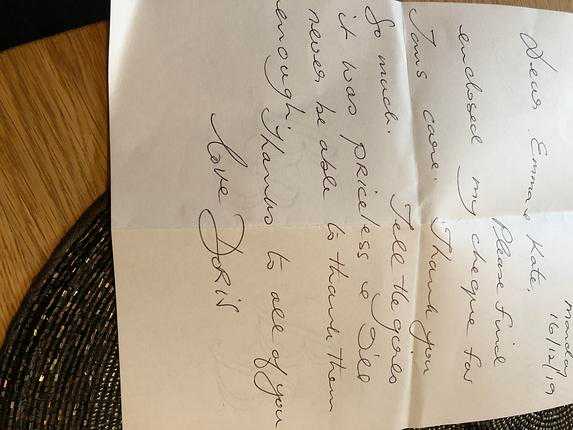 Monday
16/12/19
Dear Emma & Kate,
Please find
enclosed my cheque for
Toms care. Thank you
So much. Tell the girls
it was priceless & I'll
never be able to thank them
enough. Thanks to all of you
Love Doris